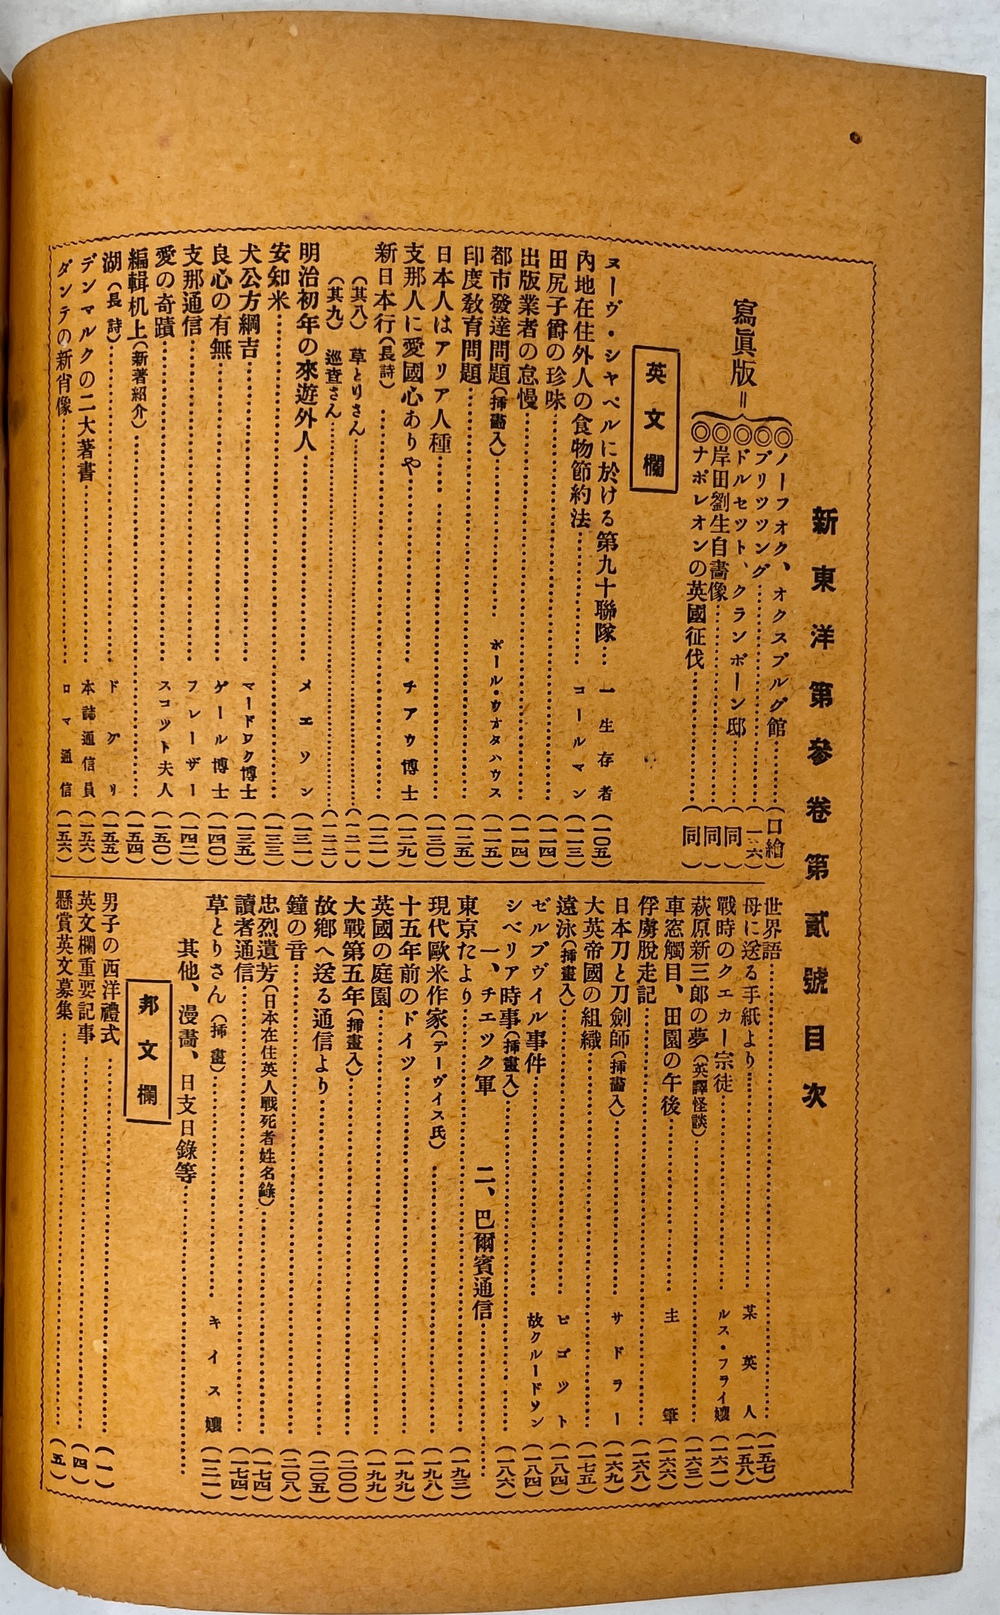 新東洋第參卷第貳號目次
寫眞版＝
◎ノーフオク、オクスブルグ館……（口繪）
◎ブリツツング……（一一六）
◎ドルセツト、クランボーン邸……（同）
◎岸田劉生自畵像……（同）
◎ナポレオンの英國征伐……（同）
英文欄
ヌーヴ・シヤペルに於ける第九十聯隊…一生存者（一〇五）
內地在住外人の食物節約法……コールマン（一一三）
田尻子爵の珍味……（一一四）
出版業者の怠慢……（一一四）
都市發達問題（揷畵入）……ポール・ウオタハウス（一一五）
印度敎育問題……（一二五）
日本人はアリア人種……（一三〇）
支那人に愛國心ありや……チアウ博士（一二九）
新日本行（長詩）……（一二一）
（其八）　草とりさん……（一二一）
（其九）　巡査さん……（一二二）
明治初年の來遊外人……メエソン（一三一）
安知米……（一三三）
犬公方綱吉……マードロク博士（一三五）
良心の有無……ゲール博士（一四〇）
支那通信……フレーザー（一四二）
愛の奇蹟……スコツト夫人（一五〇）
編輯机上（新著紹介）……（一五四）
湖（長詩）……ドグリ（一五五）
デンマルクの二大著書……本誌通信員（一五六）
ダンテの新肖像……ロマ通信（一五六）
世界語……（一五七）
母に送る手紙より……某英人（一五八）
戰時のクエカー宗徒……ルス・フライ孃（一六一）
萩原新三郎の夢（英譯怪談）……（一六三）
車窓觸目、田園の午後……主筆（一六六）
俘虜脫走記……（一六八）
日本刀と刀劍師（揷畵入）……サドラー（一六九）
大英帝國の組織……（一七五）
遠泳（揷畵入）……ピゴツト（一八四）
ゼルブヴイル事件……故クルードソン（一八四）
シベリア時事（揷畵入）……（一八六）
一、チエツク軍　二、巴爾賓通信……
東京たより……（一九三）
現代歐米作家（デーヴイス氏）……（一九八）
十五年前のドイツ……（一九九）
英國の庭園……（一九九）
大戰第五年（揷畵入）……（二〇〇）
故鄕へ送る通信より……（二〇五）
鐘の音……（二〇八）
忠烈遺芳（日本在住英人戰死者姓名錄）……（一七四）
讀者通信……（一七四）
草とりさん（揷畵）……キイス孃（一二一）
其他、漫畵、日支日錄等……
邦文欄
男子の西洋禮式……（一）
英文欄重要記事……（四）
懸賞英文募集……（五）